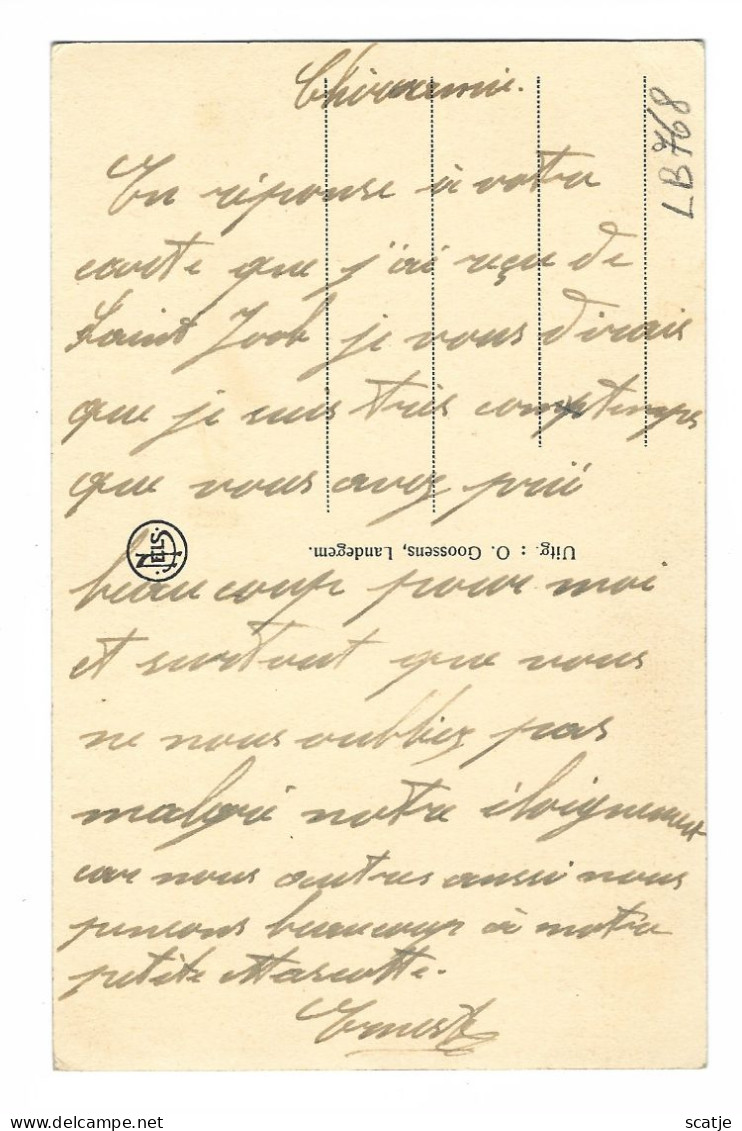 Chère amie.
LB768
En réponse à votre
carte que j'ai reçu de
Saint Joob je vous dirais
que je suis très comptemps
que vous avez prié
NELS
Uitg. : O. Goossens, Landegem.
beaucoup pour moi
et surtout que vous
ne nous oubliez pas
malgré notre éloignement
car nous autres aussi nous
pensons beaucoup à notre
petite Mascotte.
Ernest
scatje